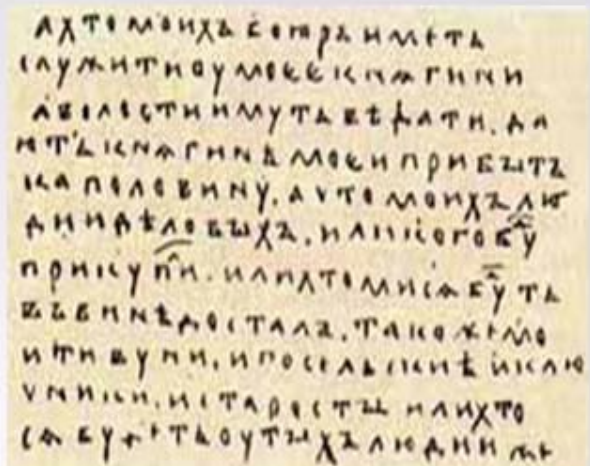 а хто моихъ боꙗръ иметь
служити оу моеє кнѧгини
а волости имуть вѣдати. да
ють кнѧгинѣ моєи прибытъ
ка половину. а что моихъ лю
дии дѣловыхъ. или кого буⷣ
прикупиⷧ. или хто ми сѧ буⷣть
въ винѣ досталъ. тако же мо
и тивуни. и посельскиѣ и клю
чники. и старосты или хто
сѧ будеть оу тыхъ людии же